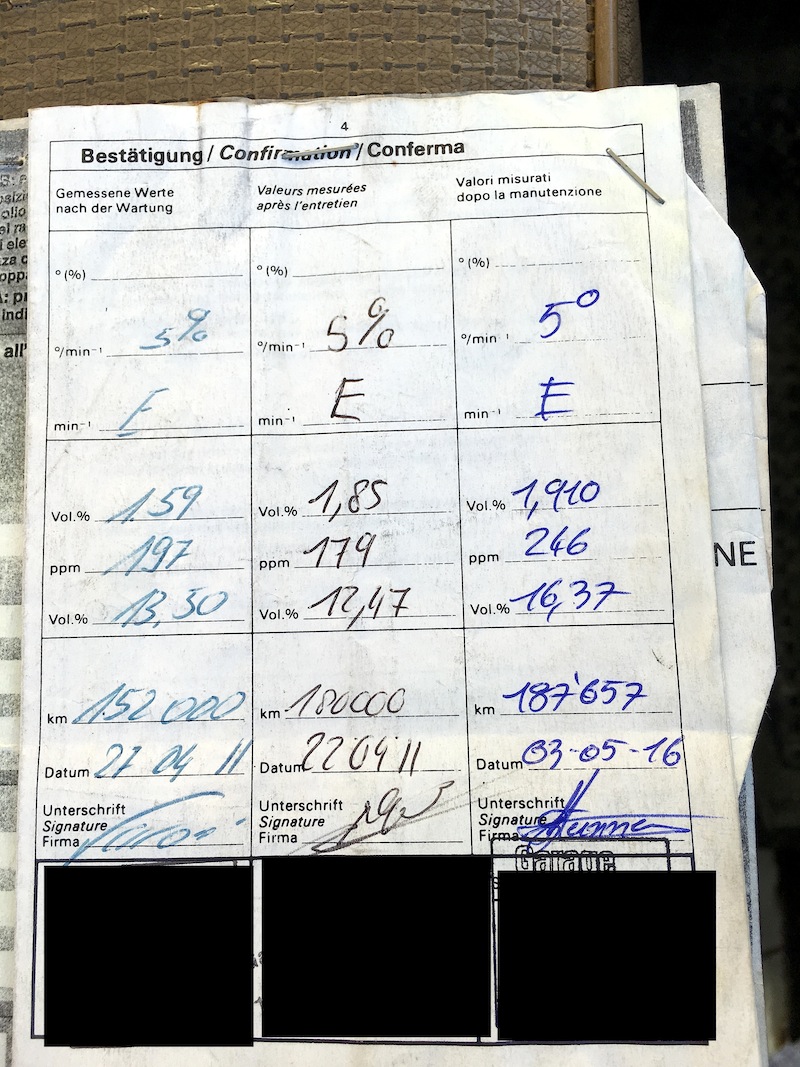 4
Bestätigung / Confirmation / Conferma
Gemessene Werte
nach der Wartung
Valeurs mesurées
après l'entretien
Valori misurati
dopo la manutenzione
° (%)
° (%)
° (%)
°/min⁻¹ 5%
°/min⁻¹ 5%
°/min⁻¹ 5°
min⁻¹ E
min⁻¹ E
min⁻¹ E
Vol.% 1.59
Vol.% 1,85
Vol.% 1,910
ppm 197
ppm 179
ppm 246
Vol.% 13,50
Vol.% 12,47
Vol.% 16,37
km 152 000
km 180000
km 187'657
Datum 27 04 11
Datum 22 04 11
Datum 03-05-16
Unterschrift
Signature
Firma
Unterschrift
Signature
Firma
Unterschrift
Signature
Firma
Garage
NE
all'